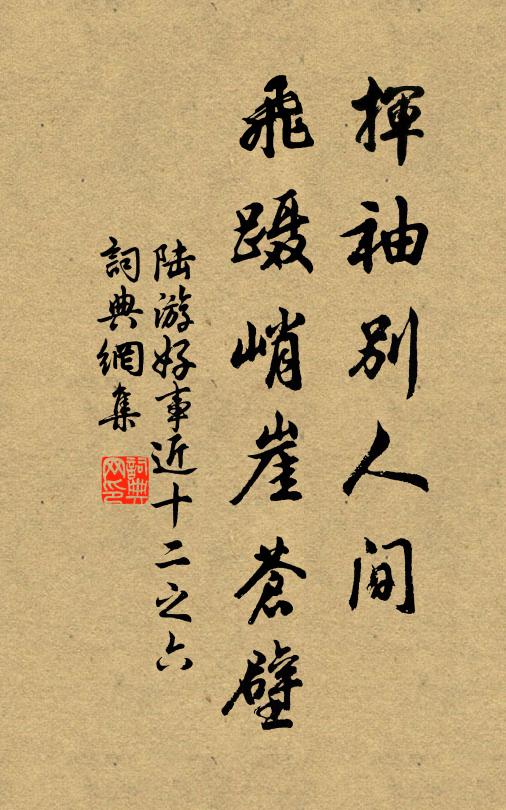 揮袖別人间
飛蹑峭崖蒼壁
陆游好事近十二之六
詞典網集
詞典网印